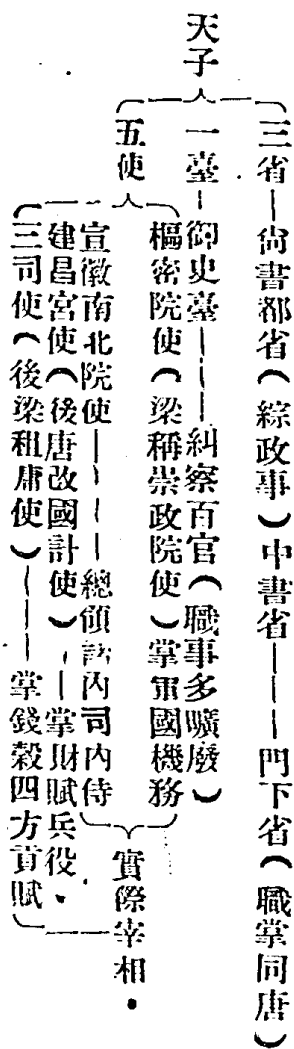 天子
三省—尚書都省（綜政事）中書省———門下省（職掌同唐）
一臺—御史臺———糾察百官（職事多曠廢）
五使
樞密院使（梁稱崇政院使）掌軍國機務
宣徽南北院使———總領諸內司內侍
建昌宮使（後唐改國計使）—掌財賦兵役
三司使（後梁租庸使）———掌錢穀四方貢賦
實際宰相